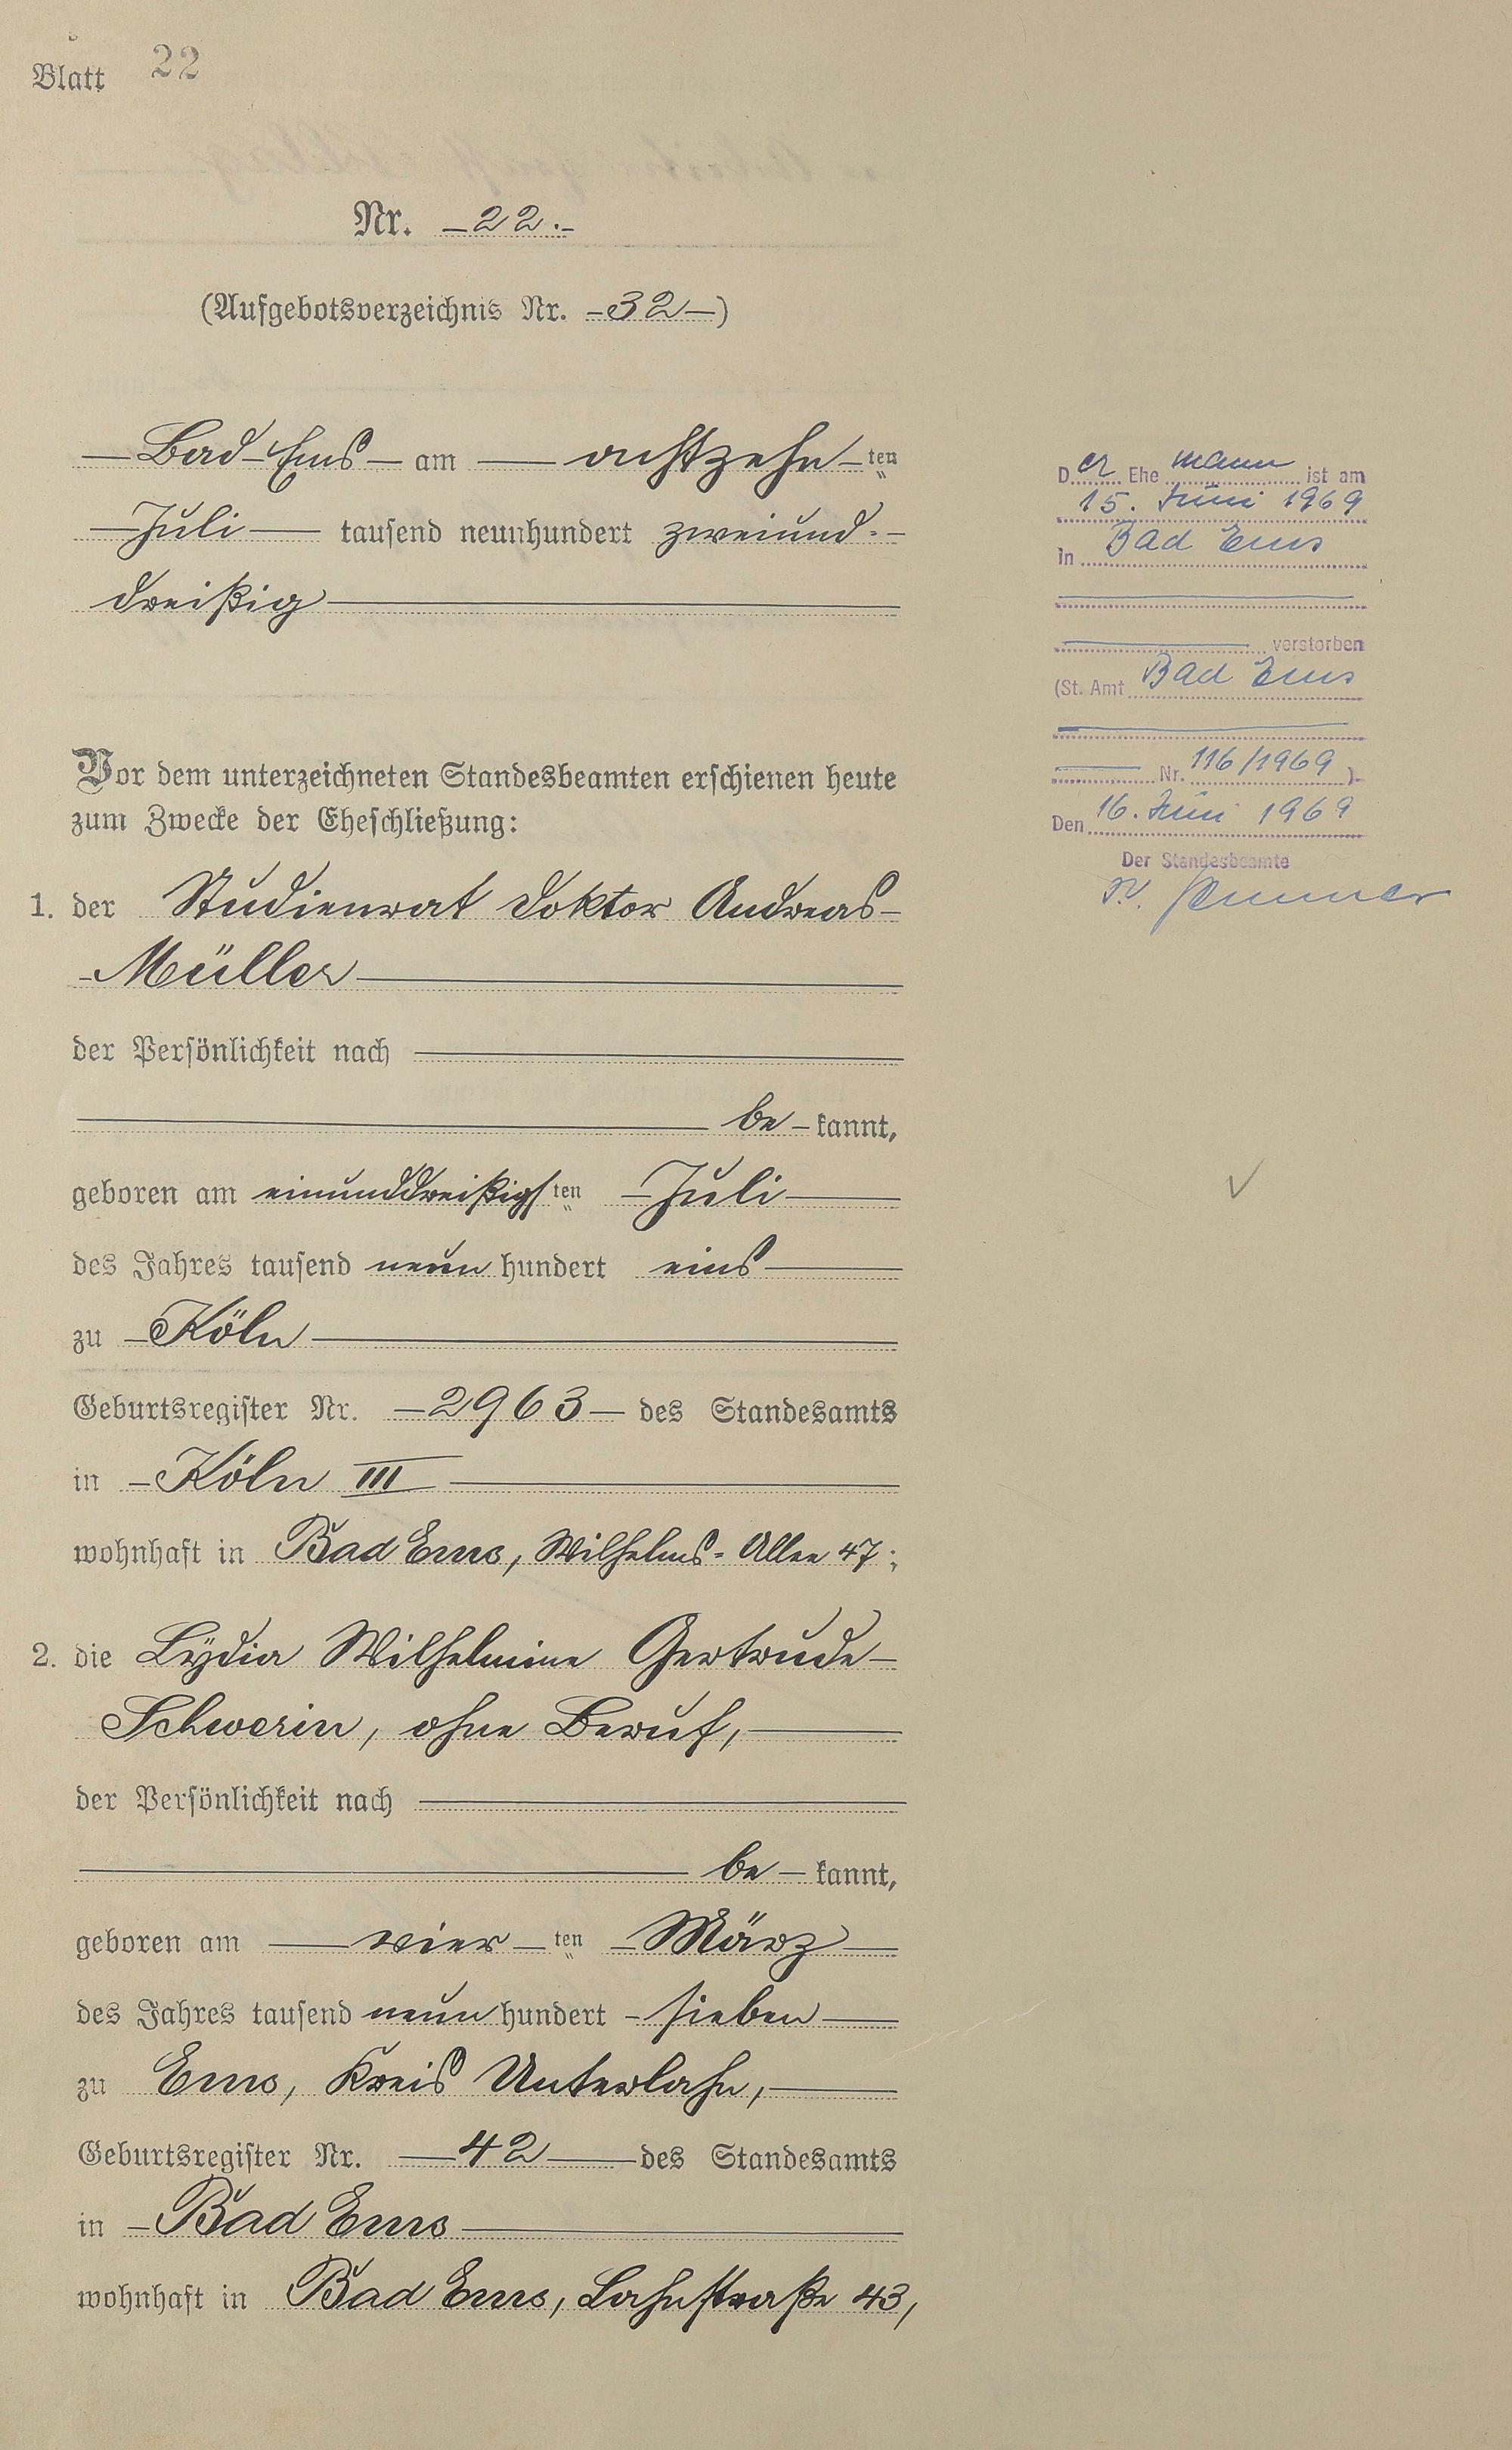 Blatt 22
Nr. 22.
(Aufgebotsverzeichnis Nr. 32)
Bad Ems am achtzehnten
Juli tausend neunhundert zweiund-
dreißig
Vor dem unterzeichneten Standesbeamten erschienen heute
zum Zwecke der Eheschließung:
1. der Studienrat Doktor Andreas
Müller
der Persönlichkeit nach
bekannt,
geboren am einunddreißigsten Juli
des Jahres tausend neunhundert eins
zu Köln
Geburtsregister Nr. 2963 des Standesamts
in Köln III
wohnhaft in Bad Ems, Wilhelms-Allee 47;
2. die Lydia Wilhelmine Gertrude
Schwerin, ohne Beruf,
der Persönlichkeit nach
bekannt,
geboren am vierten März
des Jahres tausend neunhundert sieben
zu Ems, Kreis Unterlahn,
Geburtsregister Nr. 42 des Standesamts
in Bad Ems
wohnhaft in Bad Ems, Lahnstraße 43,
Der Ehemann ist am
15. Juni 1969
in Bad Ems
verstorben
(St. Amt Bad Ems
Nr. 116/1969)
Den 16. Juni 1969
Der Standesbeamte